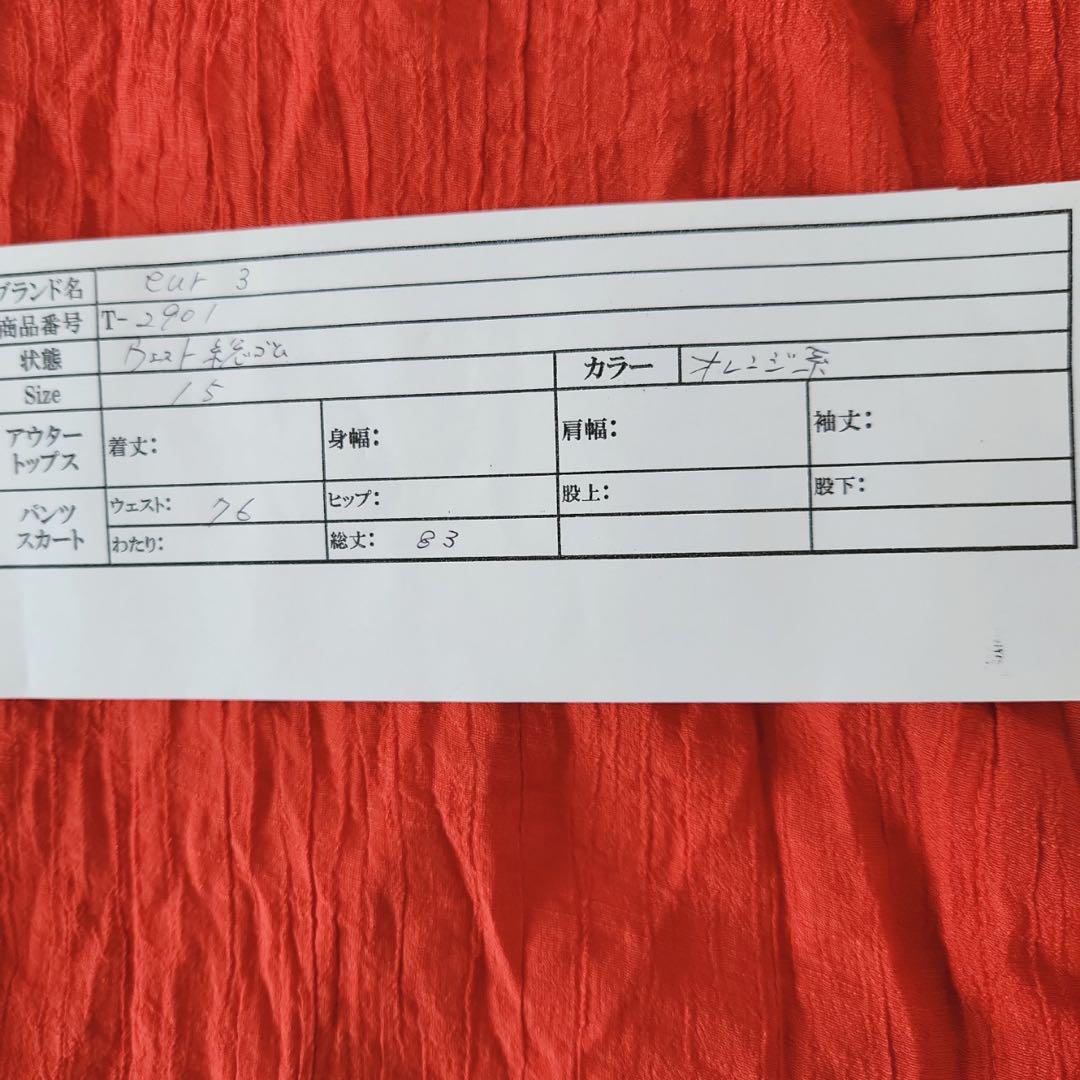 ブランド名 eur 3
商品番号 T-2901
状態 ウエスト総ゴム
Size 15 カラー オレンジ系
アウター トップス 着丈: 身幅: 肩幅: 袖丈:
パンツ スカート ウェスト: 76 ヒップ: 股上: 股下:
わたり: 総丈: 83